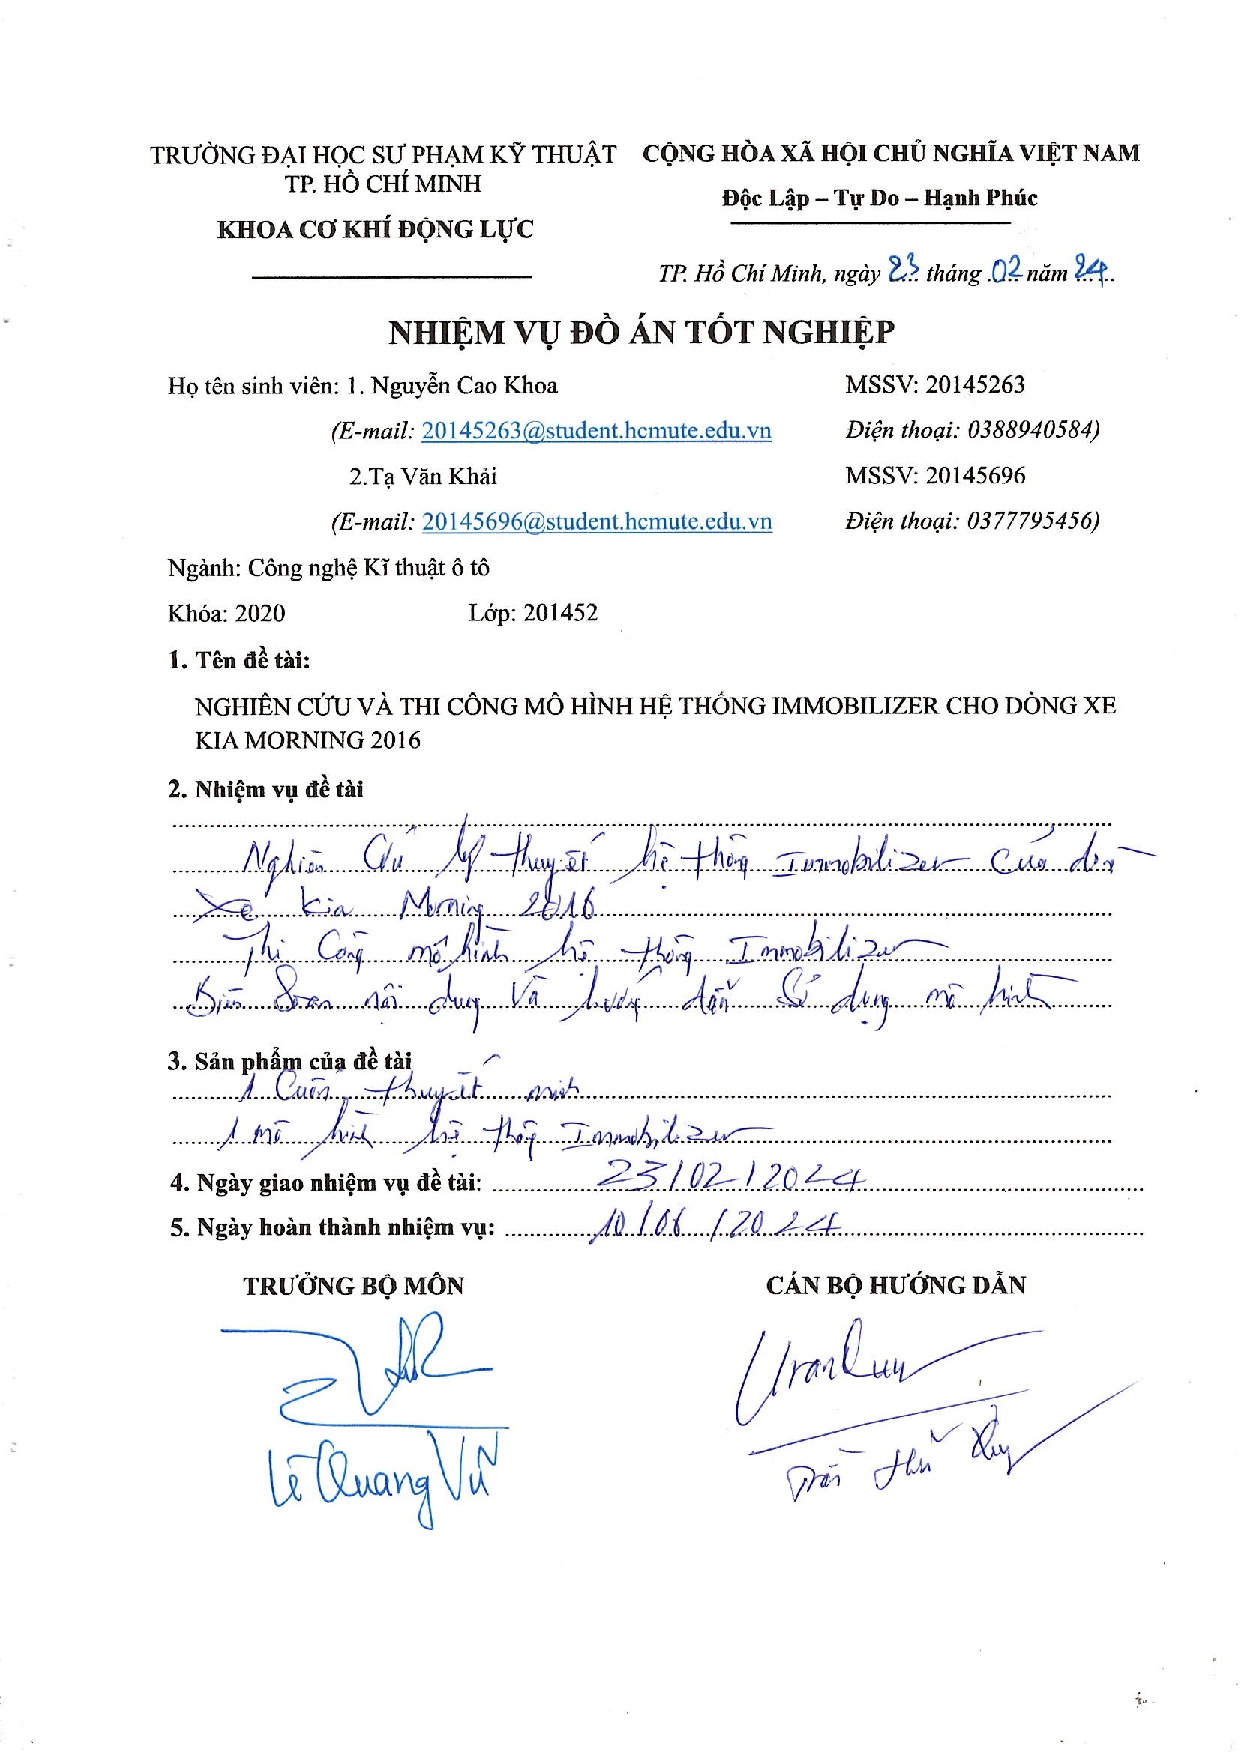 TRƯỜNG ĐẠI HỌC SƯ PHẠM KỸ THUẬT
TP. HỒ CHÍ MINH
KHOA CƠ KHÍ ĐỘNG LỰC
CỘNG HÒA XÃ HỘI CHỦ NGHĨA VIỆT NAM
Độc Lập – Tự Do – Hạnh Phúc
TP. Hồ Chí Minh, ngày 23 tháng 02 năm 24
NHIỆM VỤ ĐỒ ÁN TỐT NGHIỆP
Họ tên sinh viên: 1. Nguyễn Cao Khoa MSSV: 20145263
(E-mail: 20145263@student.hcmute.edu.vn Điện thoại: 0388940584)
2.Tạ Văn Khải MSSV: 20145696
(E-mail: 20145696@student.hcmute.edu.vn Điện thoại: 0377795456)
Ngành: Công nghệ Kĩ thuật ô tô
Khóa: 2020 Lớp: 201452
1. Tên đề tài:
NGHIÊN CỨU VÀ THI CÔNG MÔ HÌNH HỆ THỐNG IMMOBILIZER CHO DÒNG XE
KIA MORNING 2016
2. Nhiệm vụ đề tài
Nghiên Cứu lý thuyết hệ thống Immobilizer của dòng
Xe kia Morning 2016
Thi Công mô hình hệ thống Immobilizer
Biên Soạn nội dung Và hướng dẫn Sử dụng mô hình
3. Sản phẩm của đề tài
1 Cuốn thuyết minh
1 mô hình hệ thống Immobilizer
4. Ngày giao nhiệm vụ đề tài: 23/02/2024
5. Ngày hoàn thành nhiệm vụ: 10/06/2024
TRƯỞNG BỘ MÔN CÁN BỘ HƯỚNG DẪN
Lê Quang Vũ
Trần